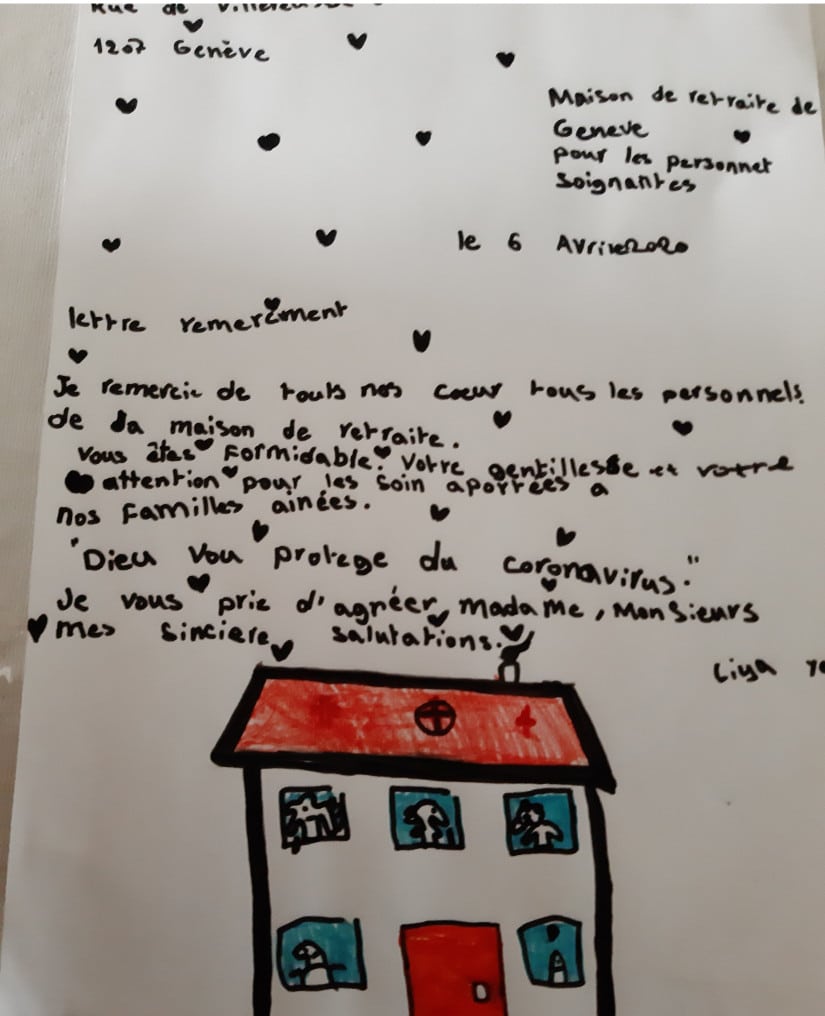 Rue de
1207 Genève
Maison de retraite de
Geneve
pour les personnet
soignantes
le 6 Avril 2020
lettre remerciment
Je remercie de touts nos coeur tous les personnels
de la maison de retraite.
Vous êtes Formidable. Votre gentillesse et votre
attention pour les soin aportées a
nos familles ainées.
"Dieu vou protege du coronavirus."
Je vous prie d'agréer, madame, Monsieurs
mes sinciere salutations.
Liya